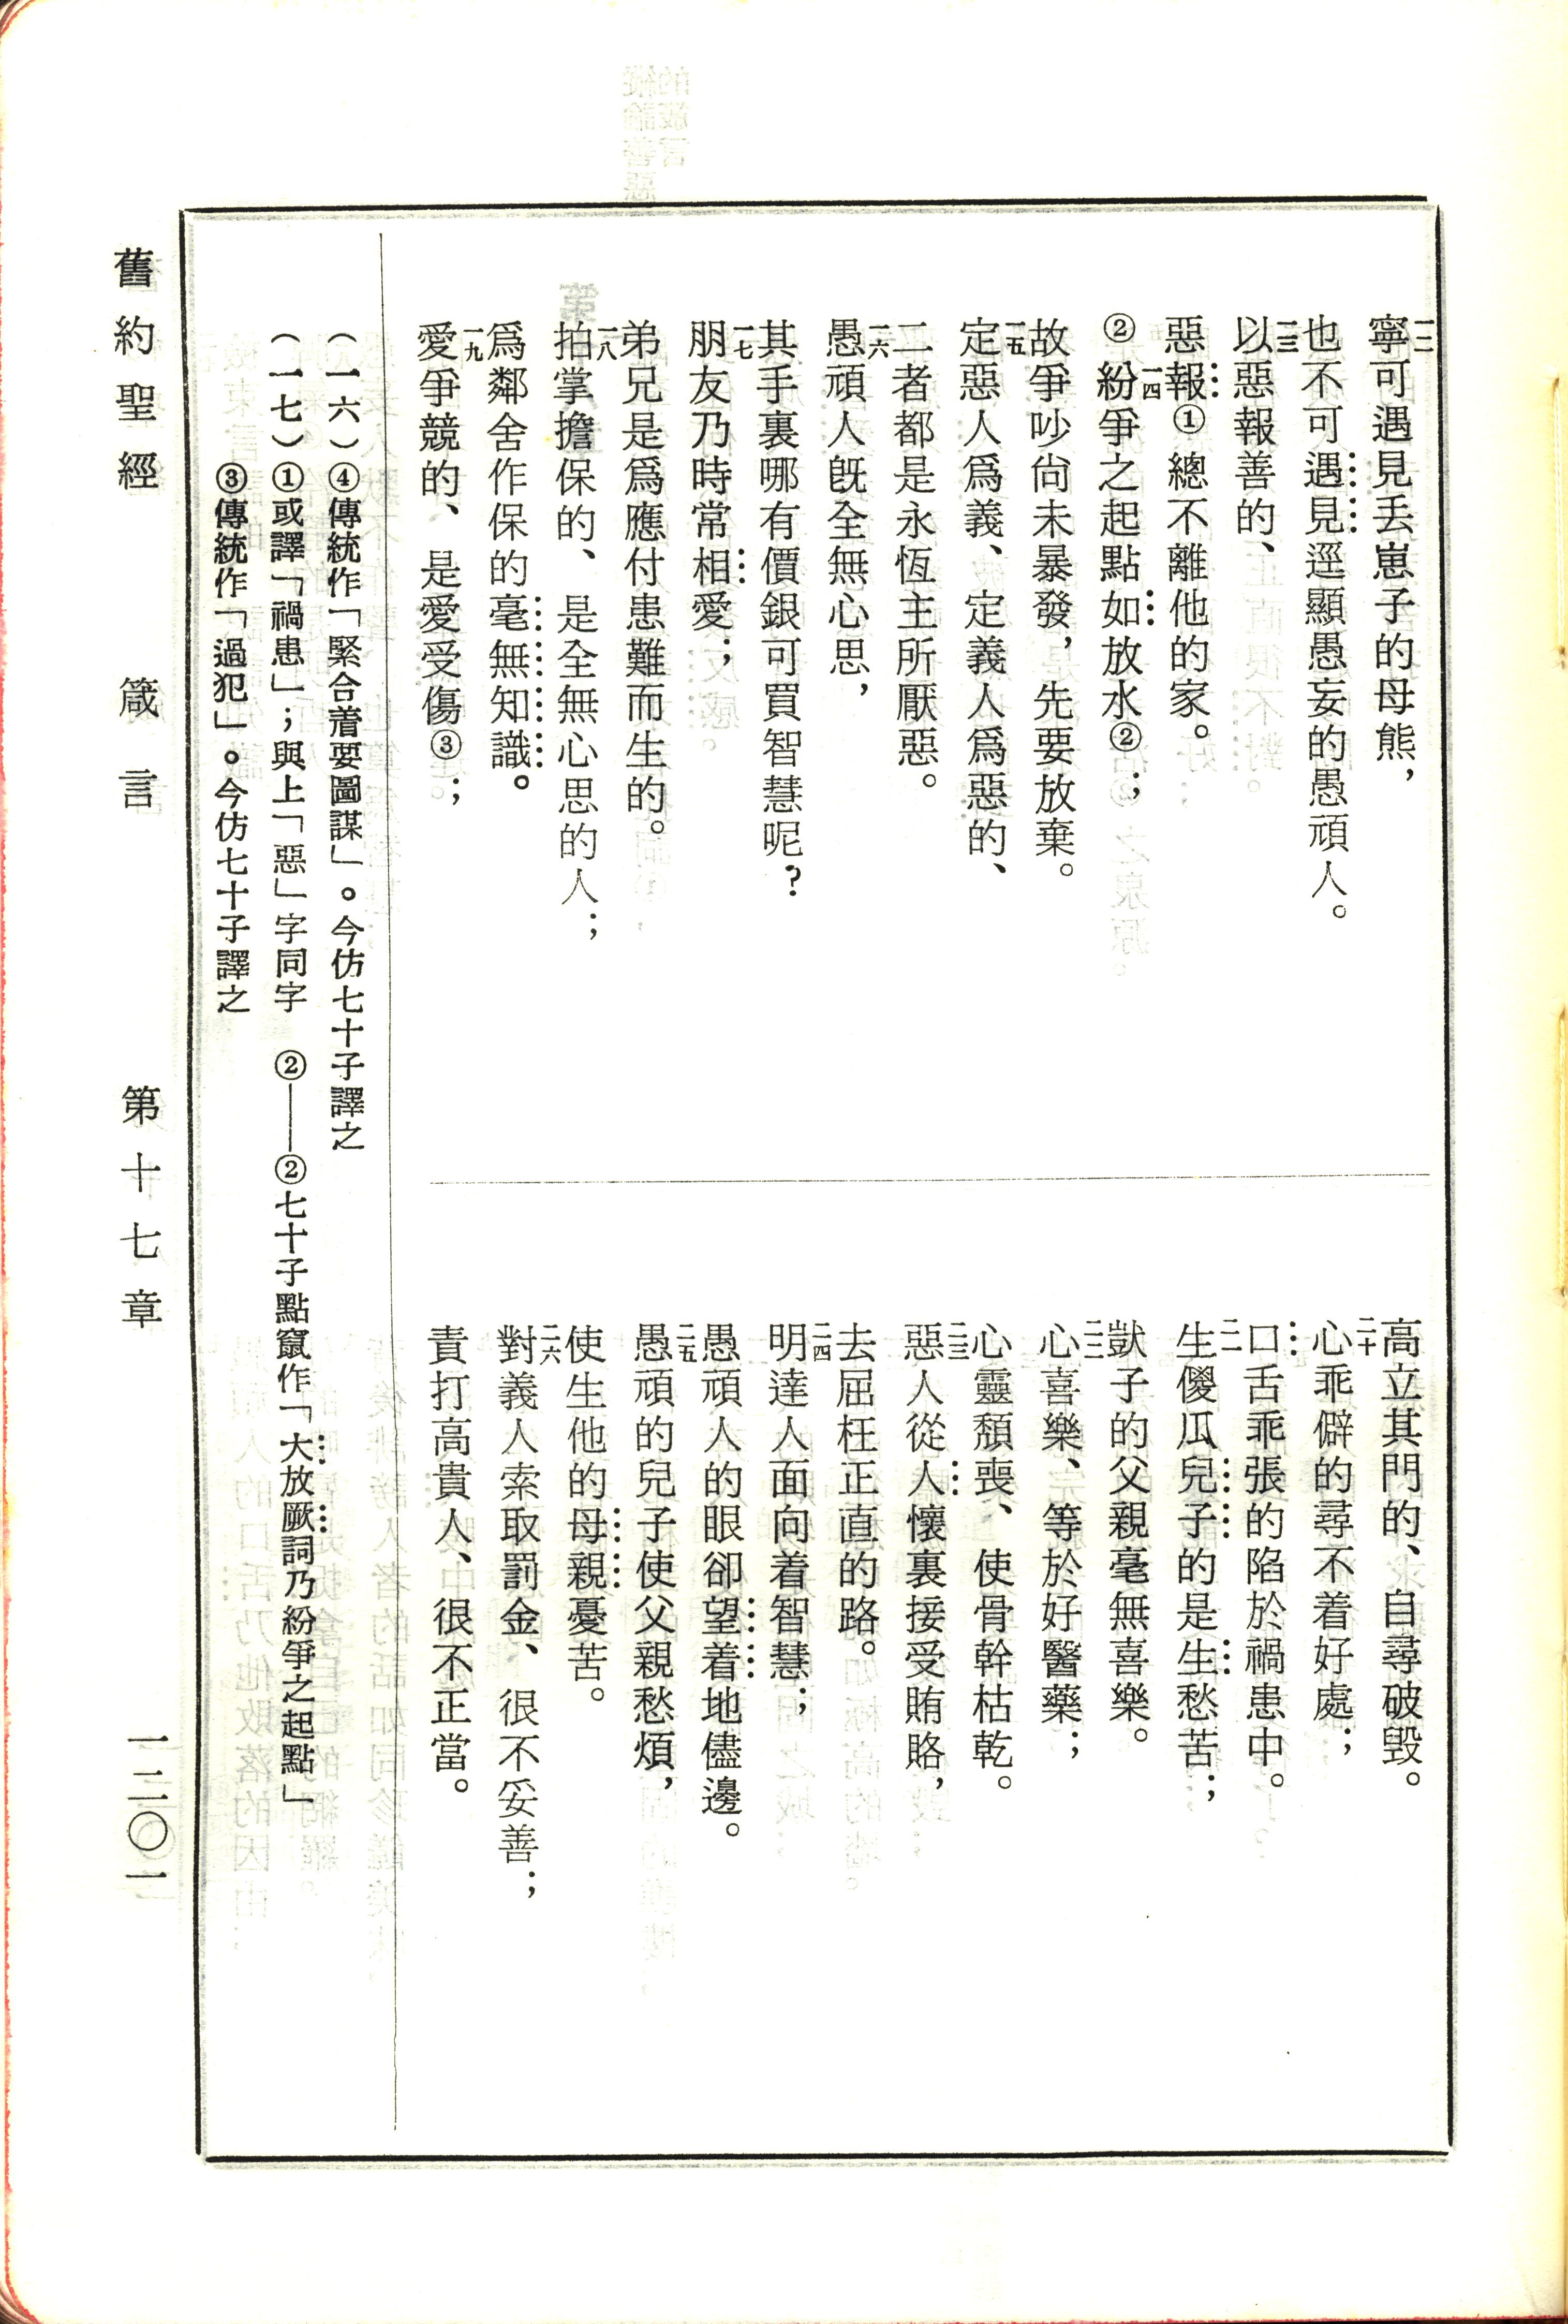 一二寧可遇見丢崽子的母熊，
也不可遇見逕顯愚妄的愚頑人。
一三以惡報善的、
惡報①總不離他的家。
一四②紛爭之起點如放水②；
故爭吵尙未暴發，先要放棄。
一五定惡人爲義、定義人爲惡的、
二者都是永恆主所厭惡。
一六愚頑人旣全無心思，
其手裏哪有價銀可買智慧呢？
一七朋友乃時常相愛；
弟兄是爲應付患難而生的。
一八拍掌擔保的、是全無心思的人；
爲鄰舍作保的毫無知識。
一九愛爭競的、是愛受傷③；
高立其門的、自尋破毀。
二十心乖僻的尋不着好處；
口舌乖張的陷於禍患中。
二一生儍瓜兒子的是生愁苦；
獃子的父親毫無喜樂。
二二心喜樂、等於好醫藥；
心靈頹喪、使骨幹枯乾。
二三惡人從人懷裏接受賄賂，
去屈枉正直的路。
二四明達人面向着智慧；
愚頑人的眼卻望着地儘邊。
二五愚頑的兒子使父親愁煩，
使生他的母親憂苦。
二六對義人索取罰金、很不妥善；
責打高貴人、很不正當。
（一六）④傳統作「緊合着要圖謀」。今仿七十子譯之
（一七）①或譯「禍患」；與上「惡」字同字　②——②七十子點竄作「大放厥詞乃紛爭之起點」
③傳統作「過犯」。今仿七十子譯之
舊約聖經　箴言　第十七章　一二〇一